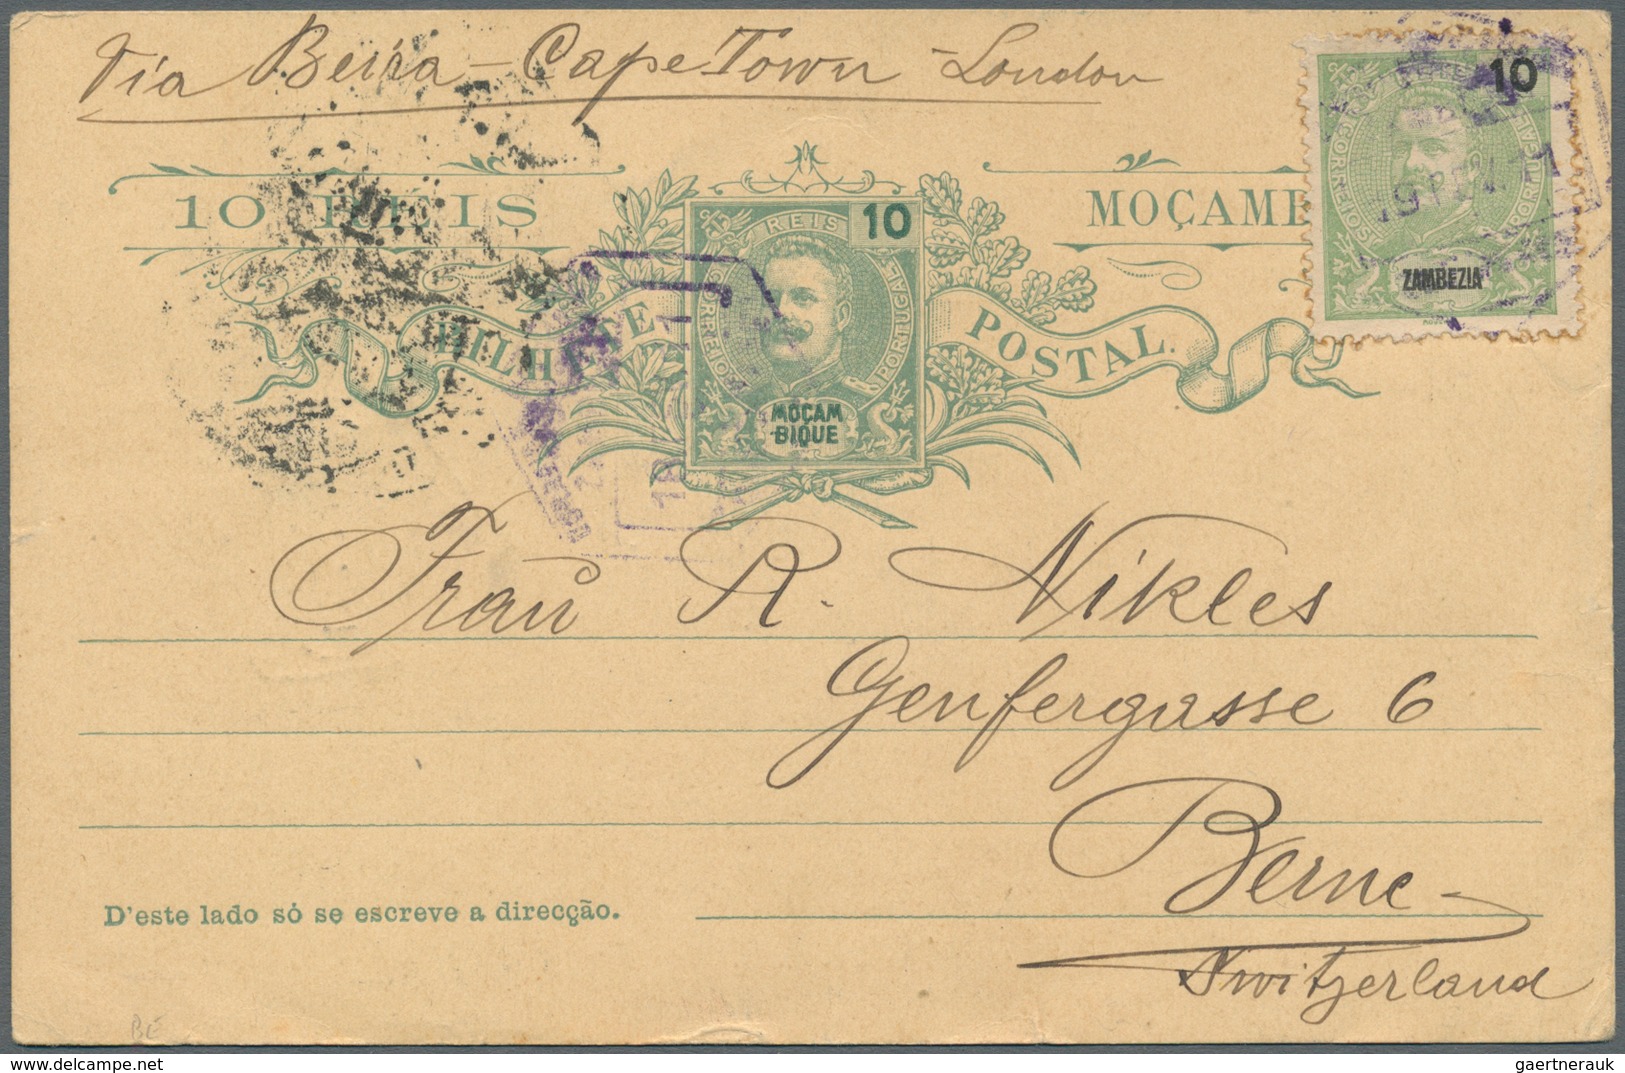 Via Beira - Cape Town - London
10 REIS
MOÇAMB
REIS 10
CORREIOS
PORTUGAL
MOÇAM
BIQUE
BILHETE POSTAL.
10
CORREIOS
ZAMBEZIA
19 FEV. 11
Frau R. Nikles
Genfergasse 6
Berne -
Switzerland
D'este lado só se escreve a direcção.
BE
gaertnerauk